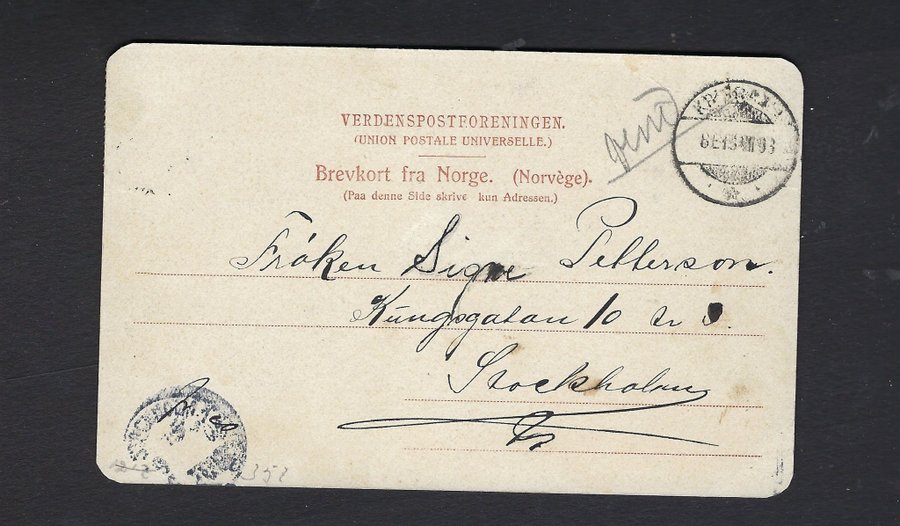 VERDENSPOSTFORENINGEN.
(UNION POSTALE UNIVERSELLE.)
Brevkort fra Norge. (Norvège).
(Paa denne Side skrive kun Adressen.)
Fröken Signe Petterson.
Kungsgatan 10
Stockholm
352